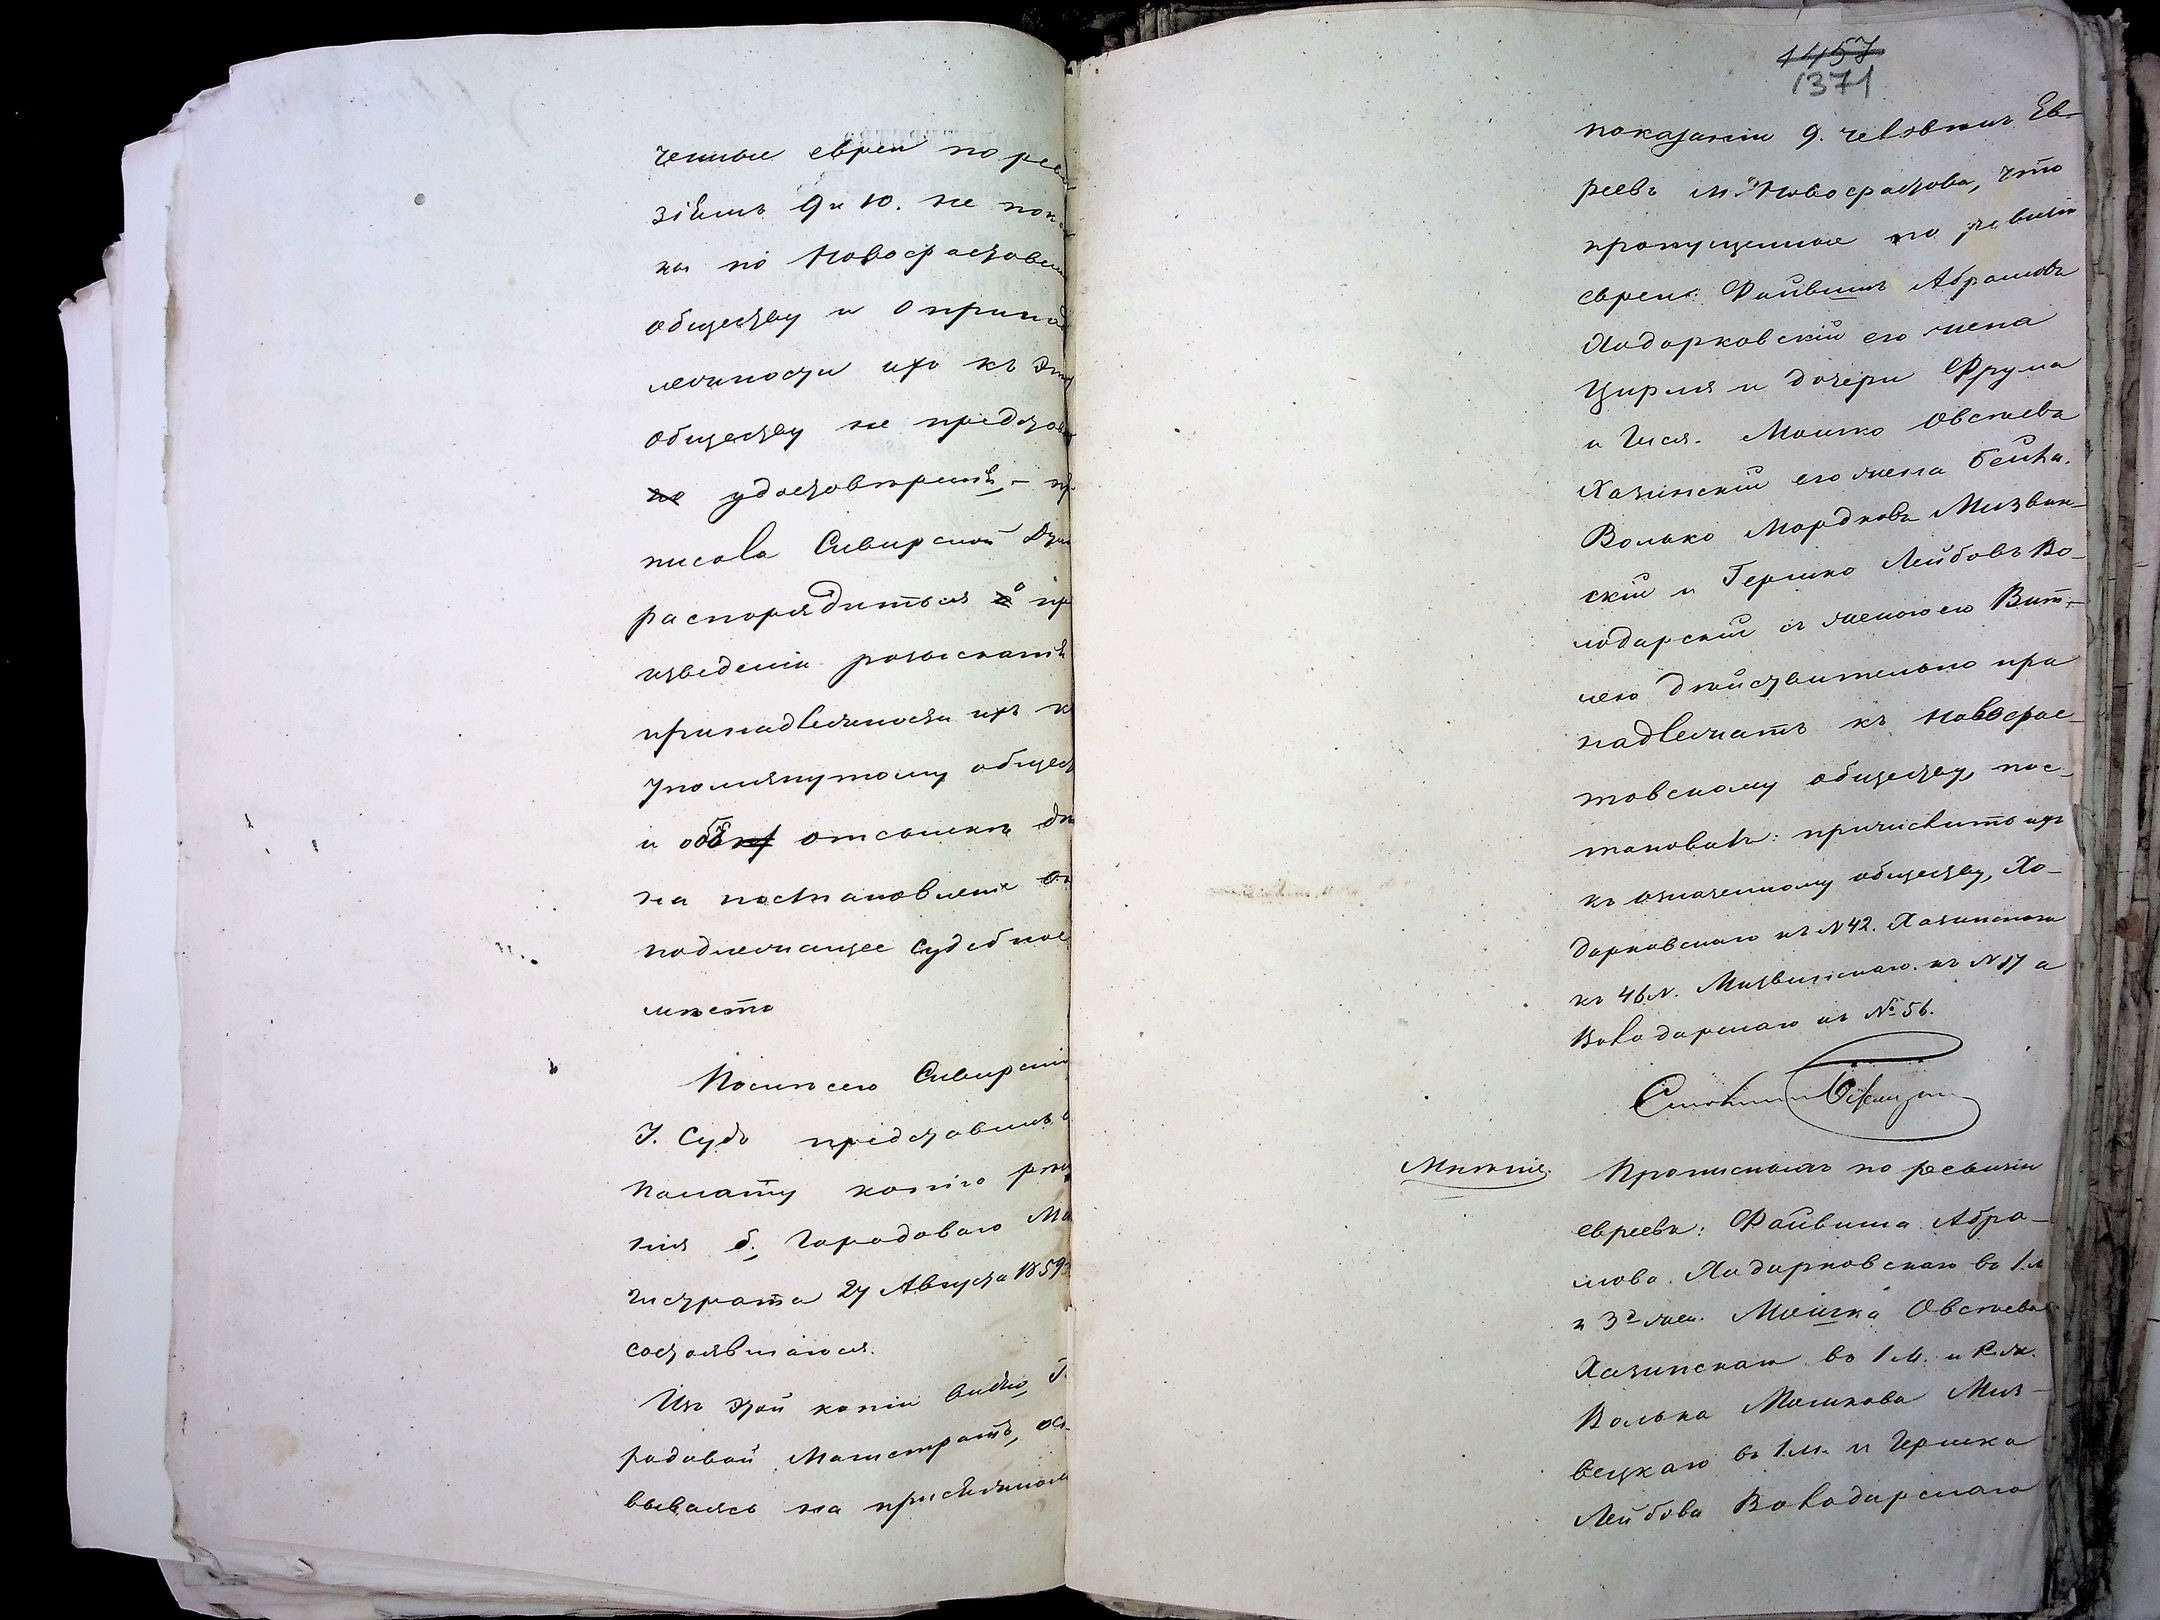 ченные евреи по реви
зіямъ 9 и 10. не пока
ны по Новофастовск
обществу и о принад
лежности ихъ къ этому
обществу не представ
удостовѣреній, пр
писала Сквирской Думѣ
распорядиться о пр
изведеніи розысканій
принадлежности ихъ к
упомянутому общес
и объ отсылкѣ дѣ
на постановленіе въ
подлежащее судебное
мѣсто
Послѣ сего Сквирскій
Г. Судъ представилъ въ
Палату копію рѣш
нія б. Городоваго Ма
гистрата 27 Августа 1859
состоявшагося.
Изъ этой копіи видно, Го
родовой Магистратъ, осн
вываясь на присяжномъ
1457
1371
показаніи 9. человѣкъ Ев-
реевъ м. Новофастова, что
пропущенные по ревизіи
евреи: Файвишъ Абрамовъ
Ходорковскій его жена
Цирля и дочери Фрума
и Гися. Мошко Овсеевъ
Хазинскій его жена Бейла.
Волько Мордковъ Мизвин-
скій и Гершко Лейбовъ Во-
лодарскій съ женою его Вит-
лею дѣйствительно при
надлежатъ къ Новофас-
товскому обществу, пос-
тановилъ: причислить ихъ
къ означенному обществу, Хо-
дорковскаго къ № 42. Хазинскаго
къ 46 №. Мизвинскаго къ № 17 а
Володарскаго къ № 56.
Мнѣніе. Прописныхъ по ревизіи
евреевъ: Файвиша Абра-
мова Ходорковскаго въ 1 м
и 3 жен. Мошка Овсеева
Хазинскаго въ 1 м. и 1 ж.
Волька Мошкова Миз-
вецкаго въ 1 м. и Гершка
Лейбова Володарскаго